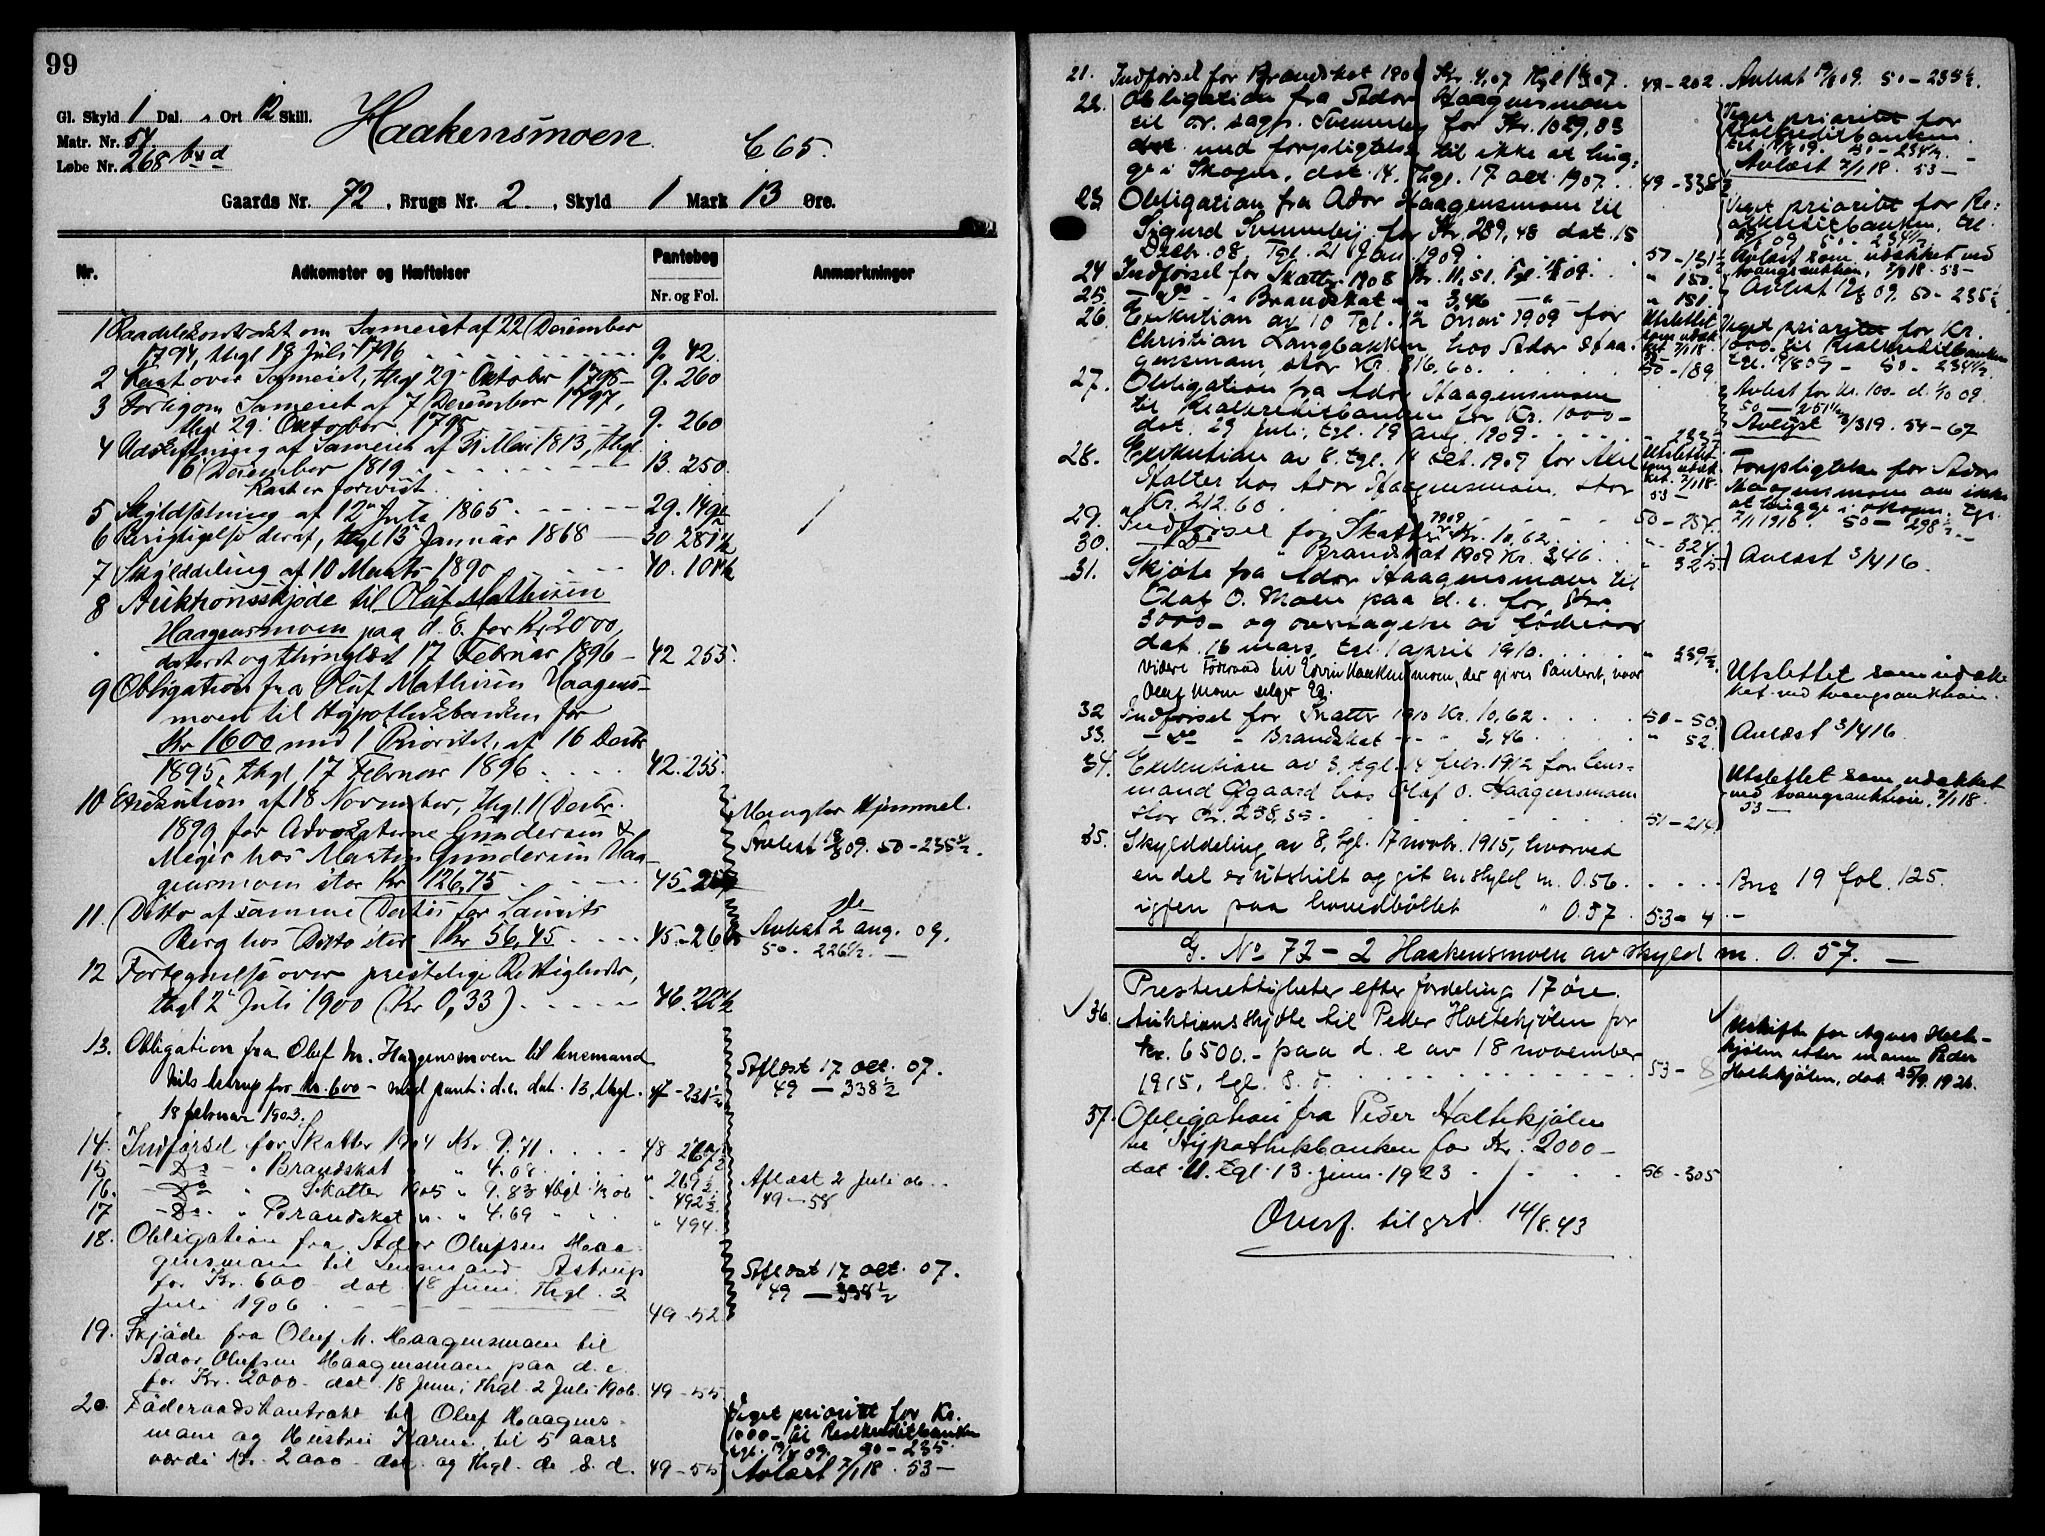 99
Gl. Skyld 1 Dal. " Ort 12 Skill.
Matr. Nr. 54
Løbe Nr. 268 b & d
Haakensmoen.
C 65.
Gaards Nr. 72, Brugs Nr. 2, Skyld 1 Mark 13 Øre.
Nr. Adkomster og Hæftelser Pantebog Nr. og Fol. Anmærkninger
1 om Sameiet af 22 December
1794, thgl 18 Juli 1796 9. 42.
2 over Sameiet, thgl 29 Oktober 1798 9. 260
3 Forlig om Sameiet af 7 December 1797,
thgl 29 Oktober 1798 9 260
4 Udskiftning af Sameiet af Mai 1813, thgl
6 December 1819 13. 250.
5 Skyldsætning af 12 Juli 1865 29. 149
6 Berigtigelse deraf, thgl 15 Januar 1868 30 281½
7 Skylddeling af 10 Marts 1890 40. 108½
8 Auktionsskjøde til Olaf Mathisen
Haagensmoen paa d. E. for Kr 2000,
dateret og thinglæst 17 Februar 1896 42 255.
9 Obligation fra Olaf Mathisen Haagens-
moen til Hypothekbanken for
Kr 1600 med 1 Prioritet, af 16 Decbr
1895, thgl 17 Februar 1896 42. 255.
10 Exekution af 18 November, thgl 11 Decbr.
1899 for Advokaterne Gundersen &
Meyer hos Martin Gundersen Haa-
gensmoen stor Kr 126,75 45
Mangler Hjemmel.
Avlæst 19/8 09. 50 - 235½.
11. Ditto af samme Dato for Laurits
Berg hos Ditto stor Kr 56,45 45. 266
Avlæst 2 aug. 09.
50. 226½.
12 Fortegnelse over prestelige Rettigheder,
thgl 2 Juli 1900 (Kr 0,33) 46. 22½
13. Obligation fra Oluf M. Haagensmoen til lensmand
Nils Astrup for Kr. 600 - med pant i d. e. dat. 13, thgl. 47 - 231½
18 februar 1903.
Aflæst 17 oct. 07.
49 — 338½
14. Indførsel for Skatter 1904 Kr 9.71 48 267½
15 - Do - " Brandskat " " 4.08 " 269½
16. - Do " Skatter 1905 " 9.83 thgl. 06 " 492½
17 - Do. " Brandskat " " 4.69 " 494.
Aflæst 2 Juli 06.
49 - 58
18. Obligation fra Ador Olufsen Haa-
gensmoen til Lensmand Astrup
for Kr. 600 - dat 18 Juni. Thgl. 2
Juli 1906 49 - 52
Aflæst 17 oct. 07.
49 — 338½
19. Skjøde fra Oluf M. Haagensmoen til
Ador Olufsen Haagensmoen paa d. e.
for Kr. 2000 - dat 18 Juni, thgl. 2 Juli 1906. 49 - 55
20. Føderaadskontrakt til Oluf Haagens-
moen og Hustru Karen, til 5 aars
værdi Kr. 2000 - dat. og thgl. de s. d. 49 - 55
Veget prioritet for Kr.
1000 - til Realkreditbanken
tgl. 19/8 09. 50 - 235.
Avlæst 7/1 18. 53 —
21. Indførsel for Brandskat 190 Kr. 4,07 thgl 07. 49 - 202. Avlæst 19/8 09. 50 - 235½.
22. Obligation fra Ador Haagensmoen
til or. sagf. Svenneby for Kr. 1029,83
med forpligtelse til ikke at hug-
ge i Skogen, dat. 14. Thgl. 17 oct. 1907. 49 - 338
Veget prioritet for
Realkreditbanken
tgl. 19/8 09. 50 - 234½.
Avlæst 7/1 18. 53 —
23. Obligation fra Ador Haagensmoen til
Sigurd Svenneby for Kr. 289,48 dat. 15
Decbr. 08, Tgl. 21 Jan. 1909. 50 - 131½
Veget prioritet for Re-
alkreditbanken, tgl.
19/8 09 50 - 234½
Avlæst som udækket ved
tvangsauktion, 7/1 18. 53 —
24 Indførsel for Skatter 1908 Kr. 11,51. Tgl. 09. " 150.
25. - Do - " Brandskat " " 3,46 " 151.
Avlæst 19/8 09. 50 - 235½
26. Exekution av 10 Tgl. 12 mai 1909 for
Christian Langbakken hos Ador Haa-
gensmoen, stor Kr. 816,60. 50 - 189
Utslettet
som udæk-
ket 7/1 18
Veget prioritet for Kr.
1000 til Realkreditbanken
tgl. 19/8 09 - 50 - 234½.
27. Obligation fra Ador Haagensmoen
til Realkreditbanken for Kr. 1000 -
dat. 29 juli, tgl. 19 aug. 1909.
Avlæst for Kr. 100 - d. 09.
50 — 251½
Avlyst 3/3 19. 54 - 67
28. Exekution av 8. tgl. 14 oct. 1909 for Axel
Holter hos Ador Haagensmoen, stor
Kr. 212.60
Utslettet
som udæk-
ket. 7/1 18.
53 —
Forpligtelse for Ador
Haagensmoen om ikke
at hugge i skogen. Tgl.
7/1 1916. 50 - 298½
29. Indførsel for Skatter 1909 Kr. 10,62. " 324
30. - Do - " Brandskat 1909 Kr. 3,46 " 325
Avlæst 3/4 16.
31. Skjøte fra Ador Haagensmoen til
Olaf O. Moen paa d. e. for Kr.
3000 - og overtagelse av føderaad
dat. 16 mars, tgl. 1 april 1910. " 339½.
Videre Føderaad til Edvin Haakensmoen, der giver Panteret, naar
Oluf Moen selger Eg.
Utslettet som udæk-
ket ved tvangsauktion.
32 Indførsel for Skatter 1910 Kr. 10,62 50 - 50
33. - Do - Brandskat - " - 3,46 " 52.
Avlæst 3/4 16.
34. Exekution av 3. tgl. 14 febr. 1912 for lens-
mand Ødgaard hos Olaf O. Haagensmoen
stor Kr. 238,35 51 - 214
Utslettet som udækket
ved tvangsauktion, 7/1 18.
53 —
35. Skylddeling av 8, tgl. 17 novbr. 1915, hvorved
en del er utskilt og git en skyld m. 0.56. Bns 19 fol. 125.
igjen paa hovedbøllet " 0.57 53 - 4
G. No 72 - 2 Haakensmoen av skyld m. 0.57. —
Presterettigheter efter fordeling 17 øre.
36. Auktionsskjøte til Peder Holtekjølen for
kr. 6500. - paa d. e av 18 november
1915, tgl. s. d. 53 - 8
Uskifte for Agnes Holte-
kjølen etter mann Peder
Holtekjølen, dat. 25/9 1926.
37. Obligation fra Peder Holtekjølen
til Hypothekbanken for Kr. 2000 -
dat. 11. tgl. 13. juni 1923 56 - 305
Overf. til grt. 14/8.43